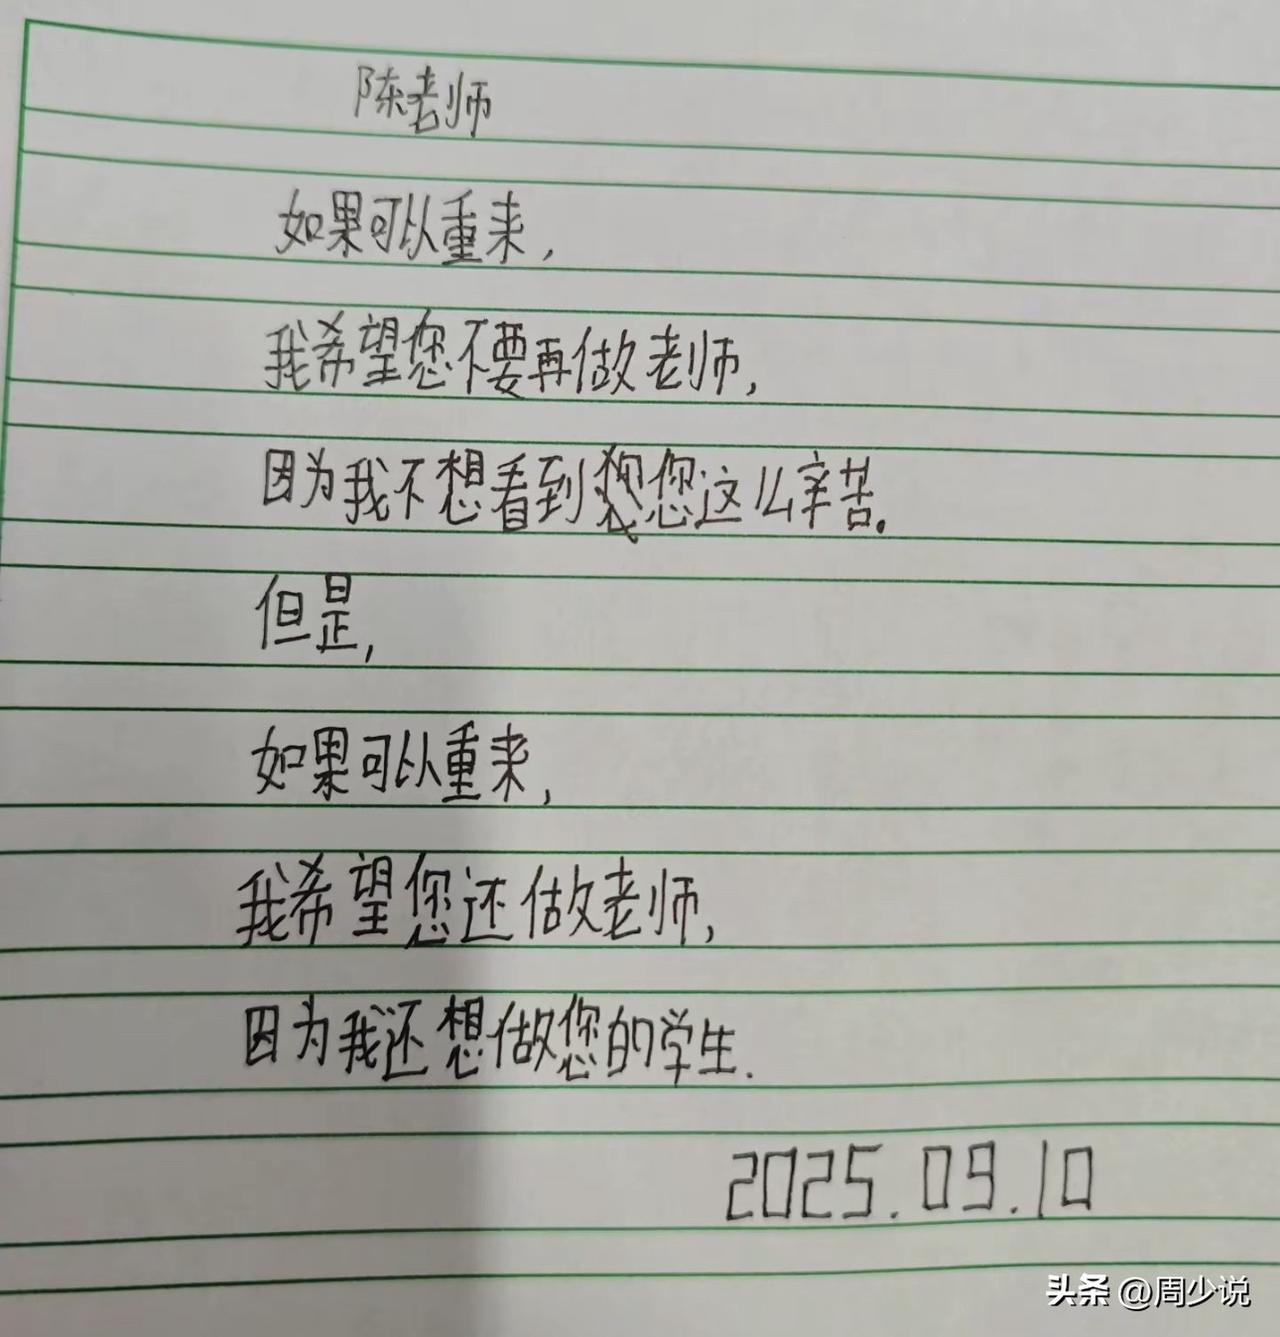 陈老师
如果可以重来,
我希望您不要再做老师,
因为我不想看到您这么辛苦.
但是,
如果可以重来,
我希望您还做老师,
因为我还想做您的学生.
2025.09.10
头条 @周少说